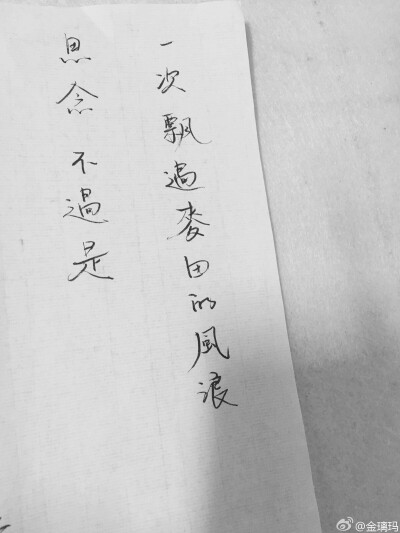 思念不過是
一次飄過麥田的風浪
@金璃玛